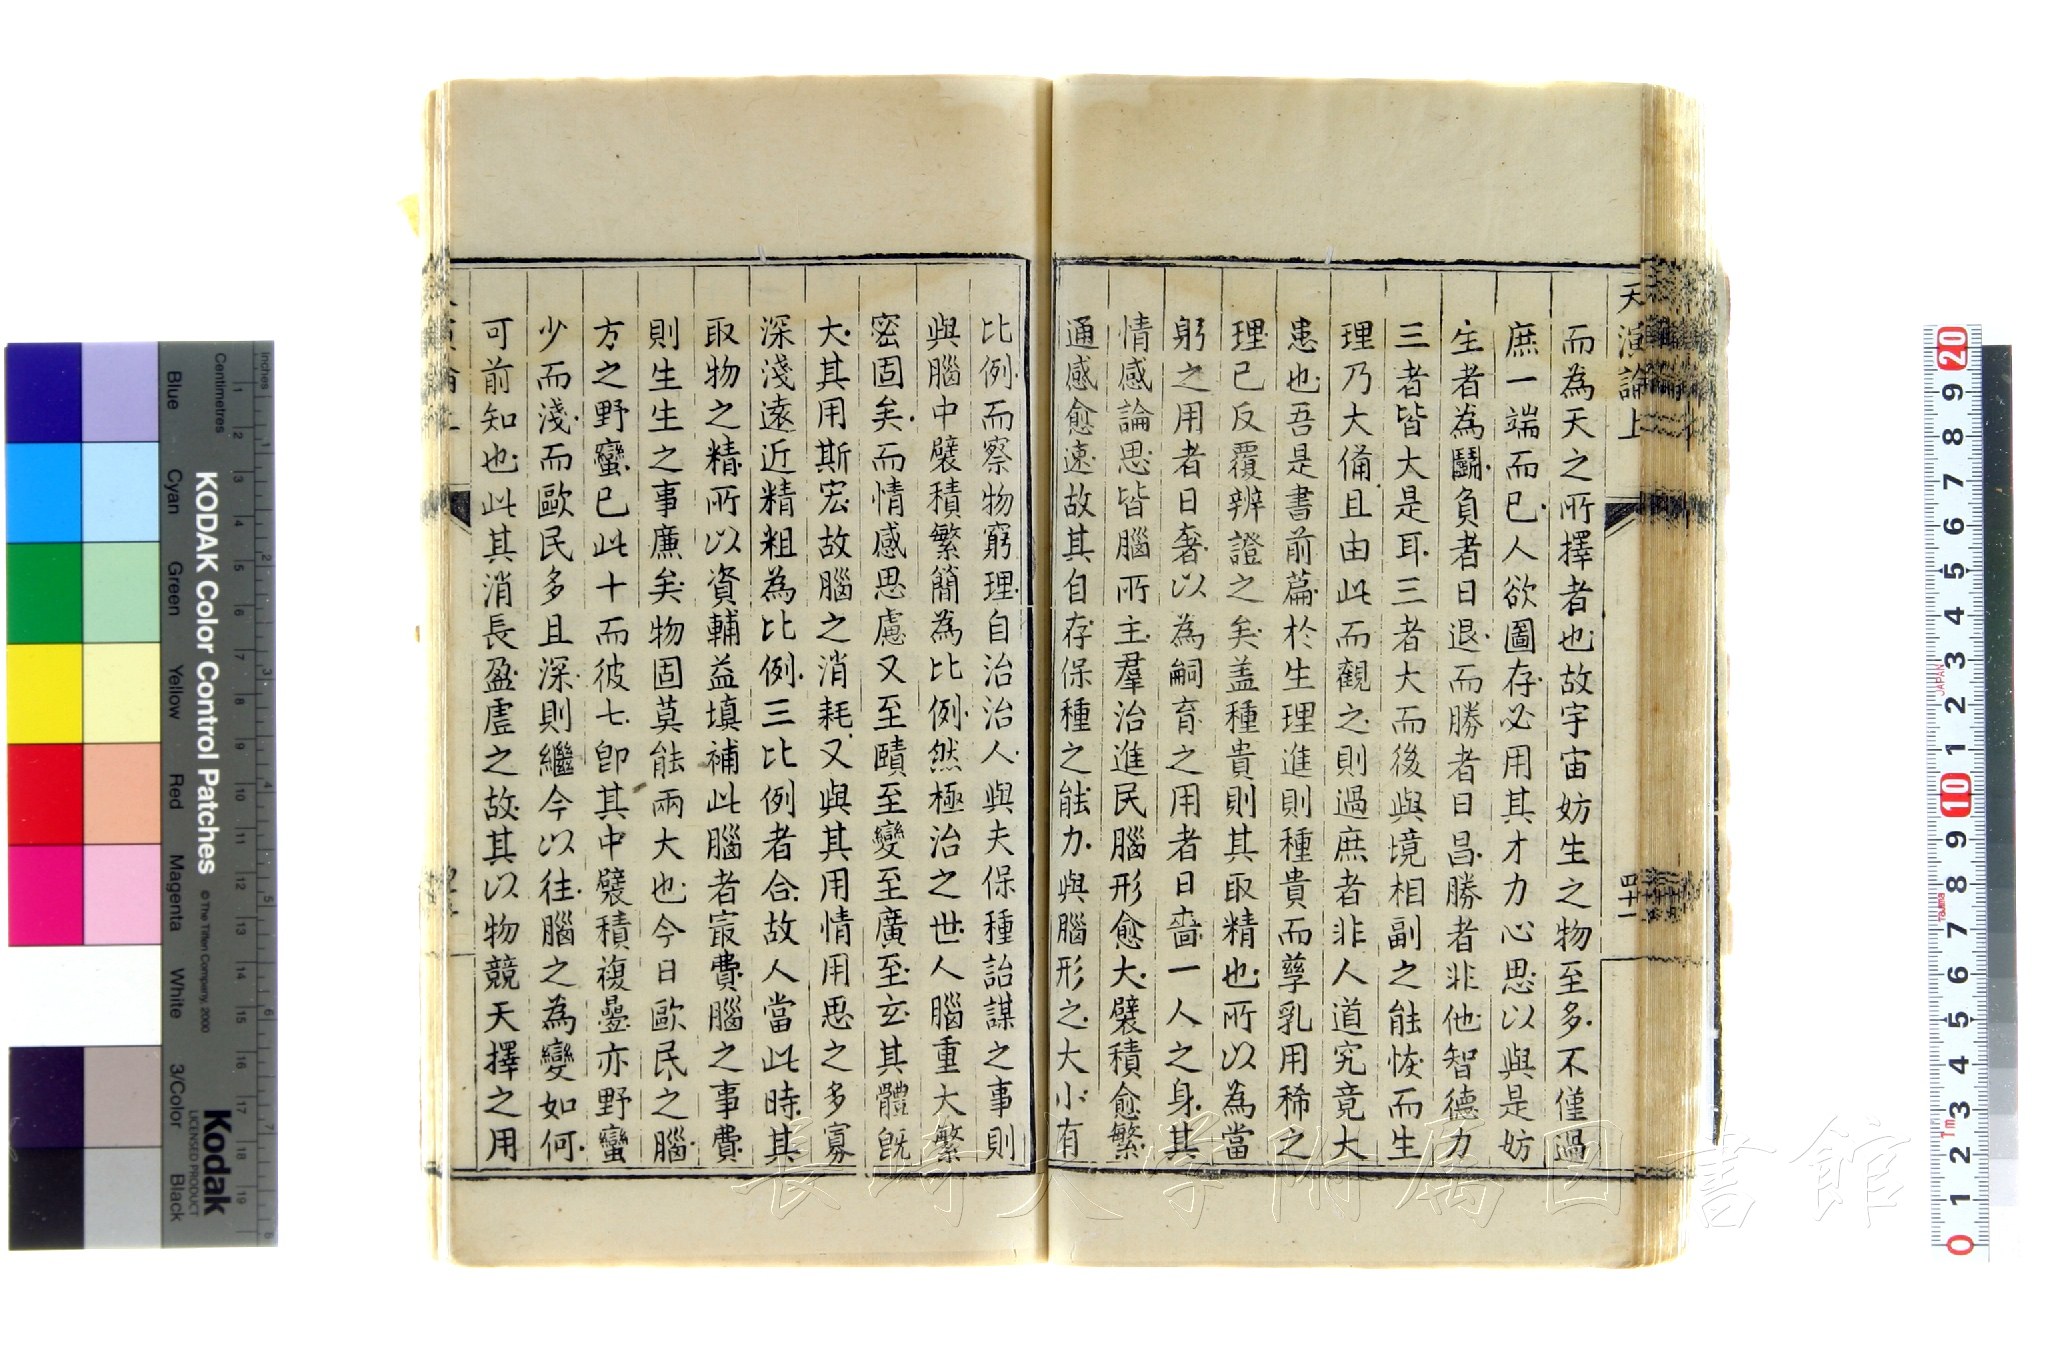 天演論上
四十一
而為天之所擇者也故宇宙妨生之物至多不僅過
庶一端而已人欲圖存必用其才力心思以與是妨
生者為鬭負者日退而勝者日昌勝者非他智德力
三者皆大是耳三者大而後與境相副之能恢而生
理乃大備且由此而觀之則過庶者非人道究竟大
患也吾是書前篇於生理進則種貴而孳乳用稀之
理已反覆辨證之矣蓋種貴則其取精也所以為當
躬之用者日奢以為嗣育之用者日嗇一人之身其
情感論思皆腦所主羣治進民腦形愈大襞積愈繁
通感愈速故其自存保種之能力與腦形之大小有
比例而察物窮理自治治人與夫保種詒謀之事則
與腦中襞積繁簡為比例然極治之世人腦重大繁
密固矣而情感思慮又至賾至變至廣至玄其體旣
大其用斯宏故腦之消耗又與其用情用思之多寡
深淺遠近精粗為比例三比例者合故人當此時其
取物之精所以資輔益填補此腦者㝡費腦之事費
則生生之事廉矣物固莫能兩大也今日歐民之腦
方之野蠻已此十而彼七卽其中襞積複疊亦野蠻
少而淺而歐民多且深則繼今以往腦之為變如何
可前知也此其消長盈虛之故其以物競天擇之用
KODAK Color Control Patches
© The Tiffen Company, 2000
Kodak
LICENSED PRODUCT
Inches
Centimetres
Blue
Cyan
Green
Yellow
Red
Magenta
White
3/Color
Black
1 2 3 4 5 6 7 8 9 10 11 12 13 14 15 16 17 18 19
20 9 8 7 6 5 4 3 2 1 10 9 8 7 6 5 4 3 2 1 0
JAPAN
Tajima
1m
長崎大学附属図書館